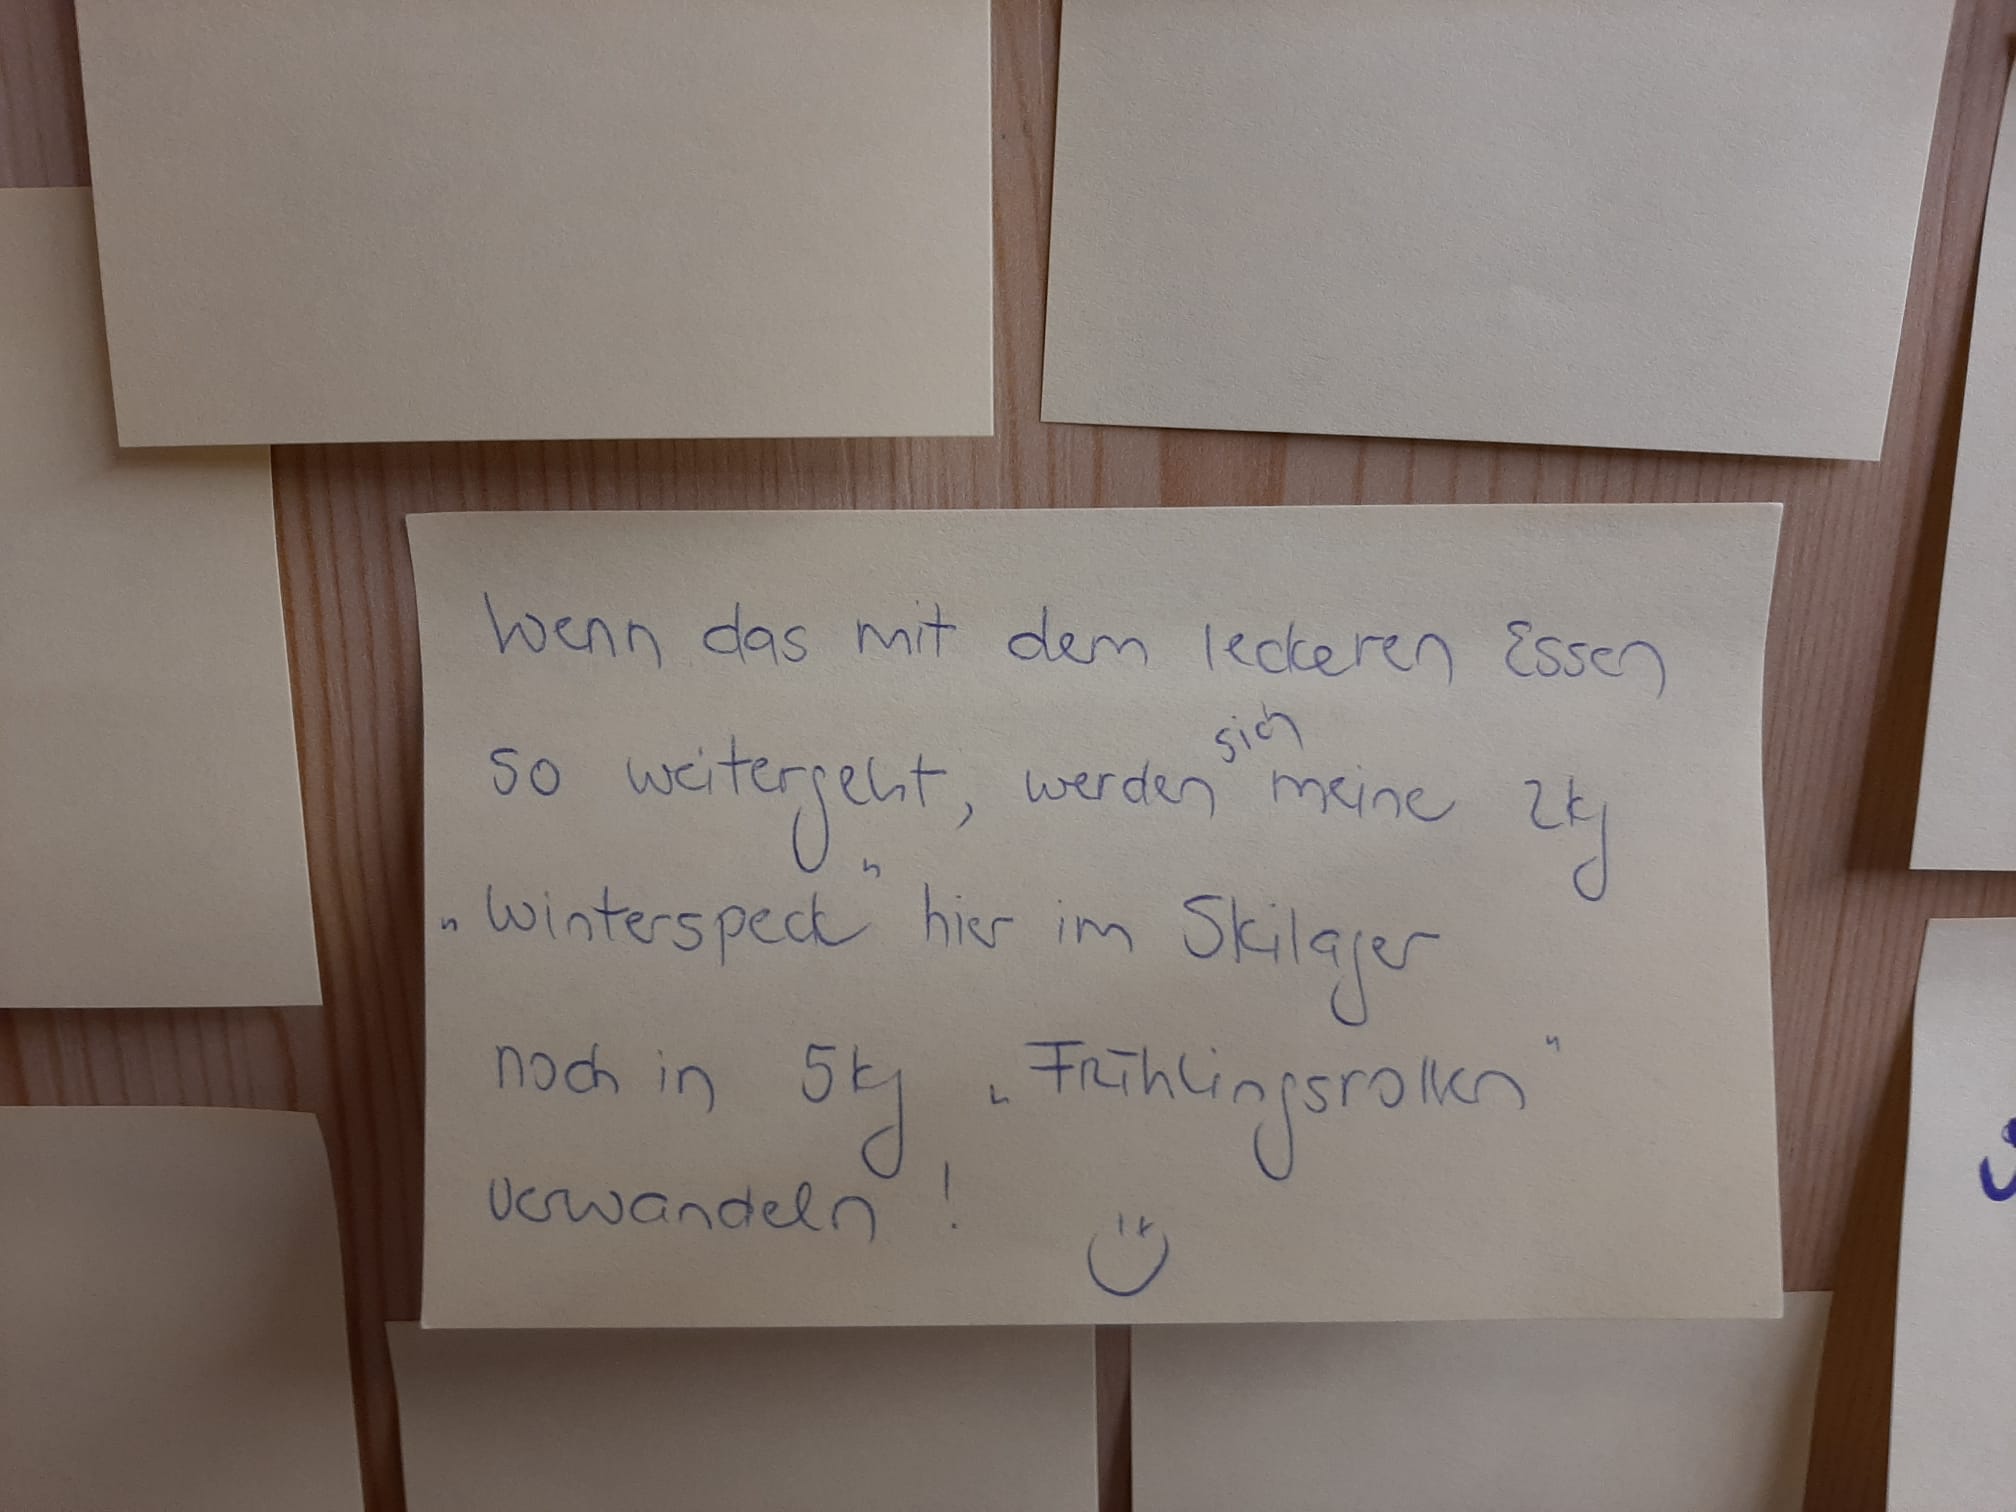 Wenn das mit dem leckeren Essen
so weitergeht, werden sich meine 2kg
„Winterspeck" hier im Skilager
noch in 5kg „Frühlingsrollen"
verwandeln!